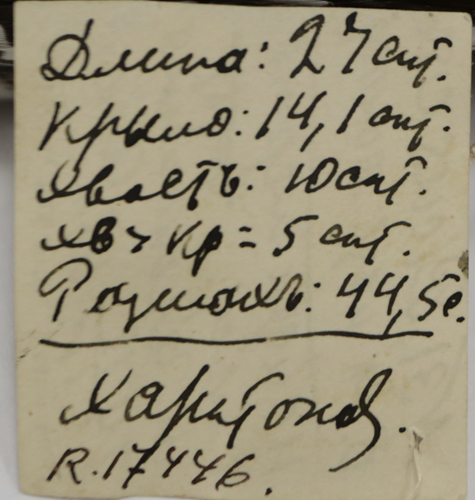 Длина: 27 cнт.
Крыло: 14,1 cнт.
Хвостъ: 10 cнт.
хв > Кр = 5 cнт.
Розмахъ: 44,5 с.
Харитонов.
R.17446.